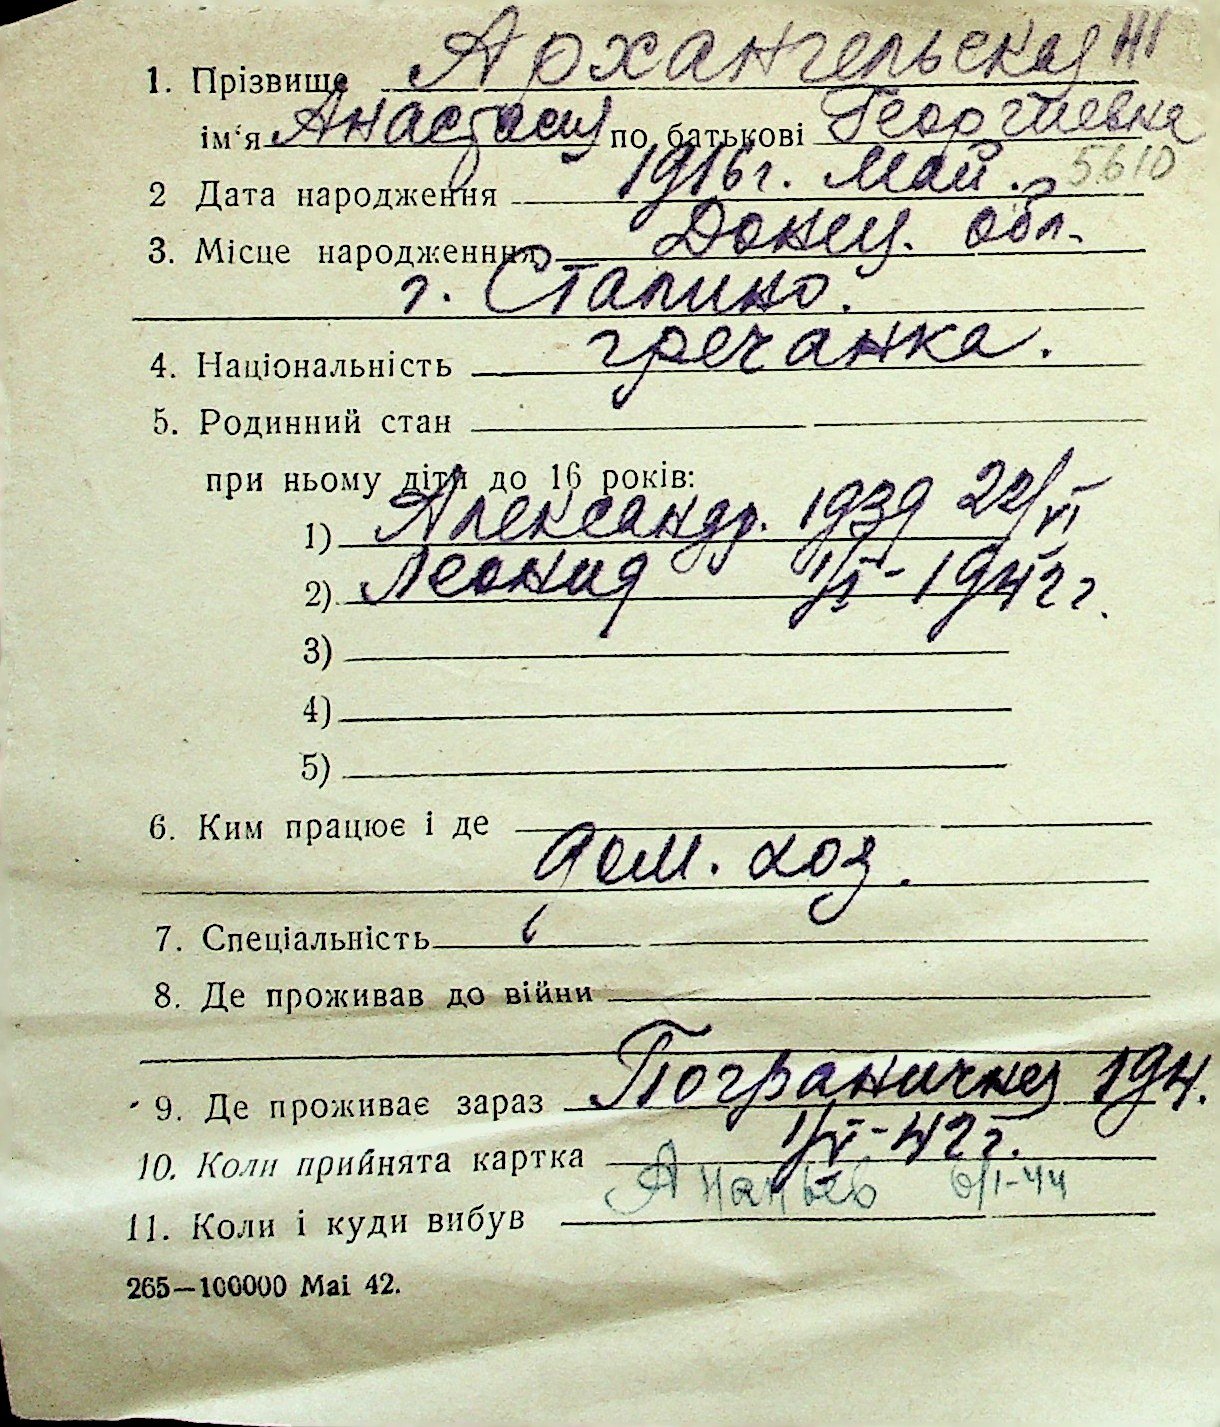 1. Прізвище Архангельская
ім'я Анастасия по батькові Георгиевна
2 Дата народження 1916 г. май. 5610
3. Місце народженння Донец. обл.
г. Сталино.
4. Національність гречанка.
5. Родинний стан
при ньому діти до 16 років:
1) Александр. 1939 22/VI
2) Леонид 1/I - 1942 г.
3)
4)
5)
6. Ким працює і де
дом. хоз.
7. Спеціальність
8. Де проживав до війни
9. Де проживає зараз Пограничная 194.
10. Коли прийнята картка 1/VI-42 г.
11. Коли і куди вибув Ананьев 6/I-44
265—100000 Mai 42.